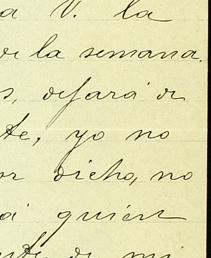 a V. la
de la semana.
s, dejará de
te, yo no
or dicho, no
á quien
nte de mi